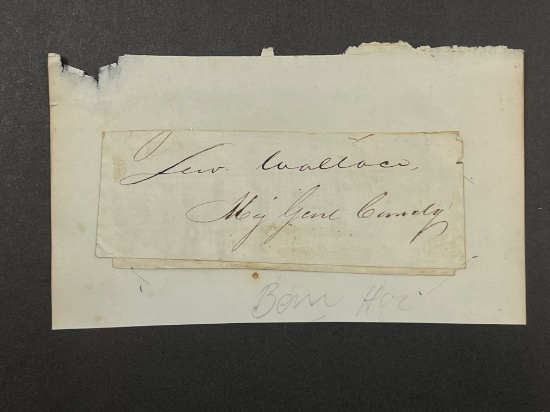 Lew. Wallace,
Maj Genl Comdg
Born